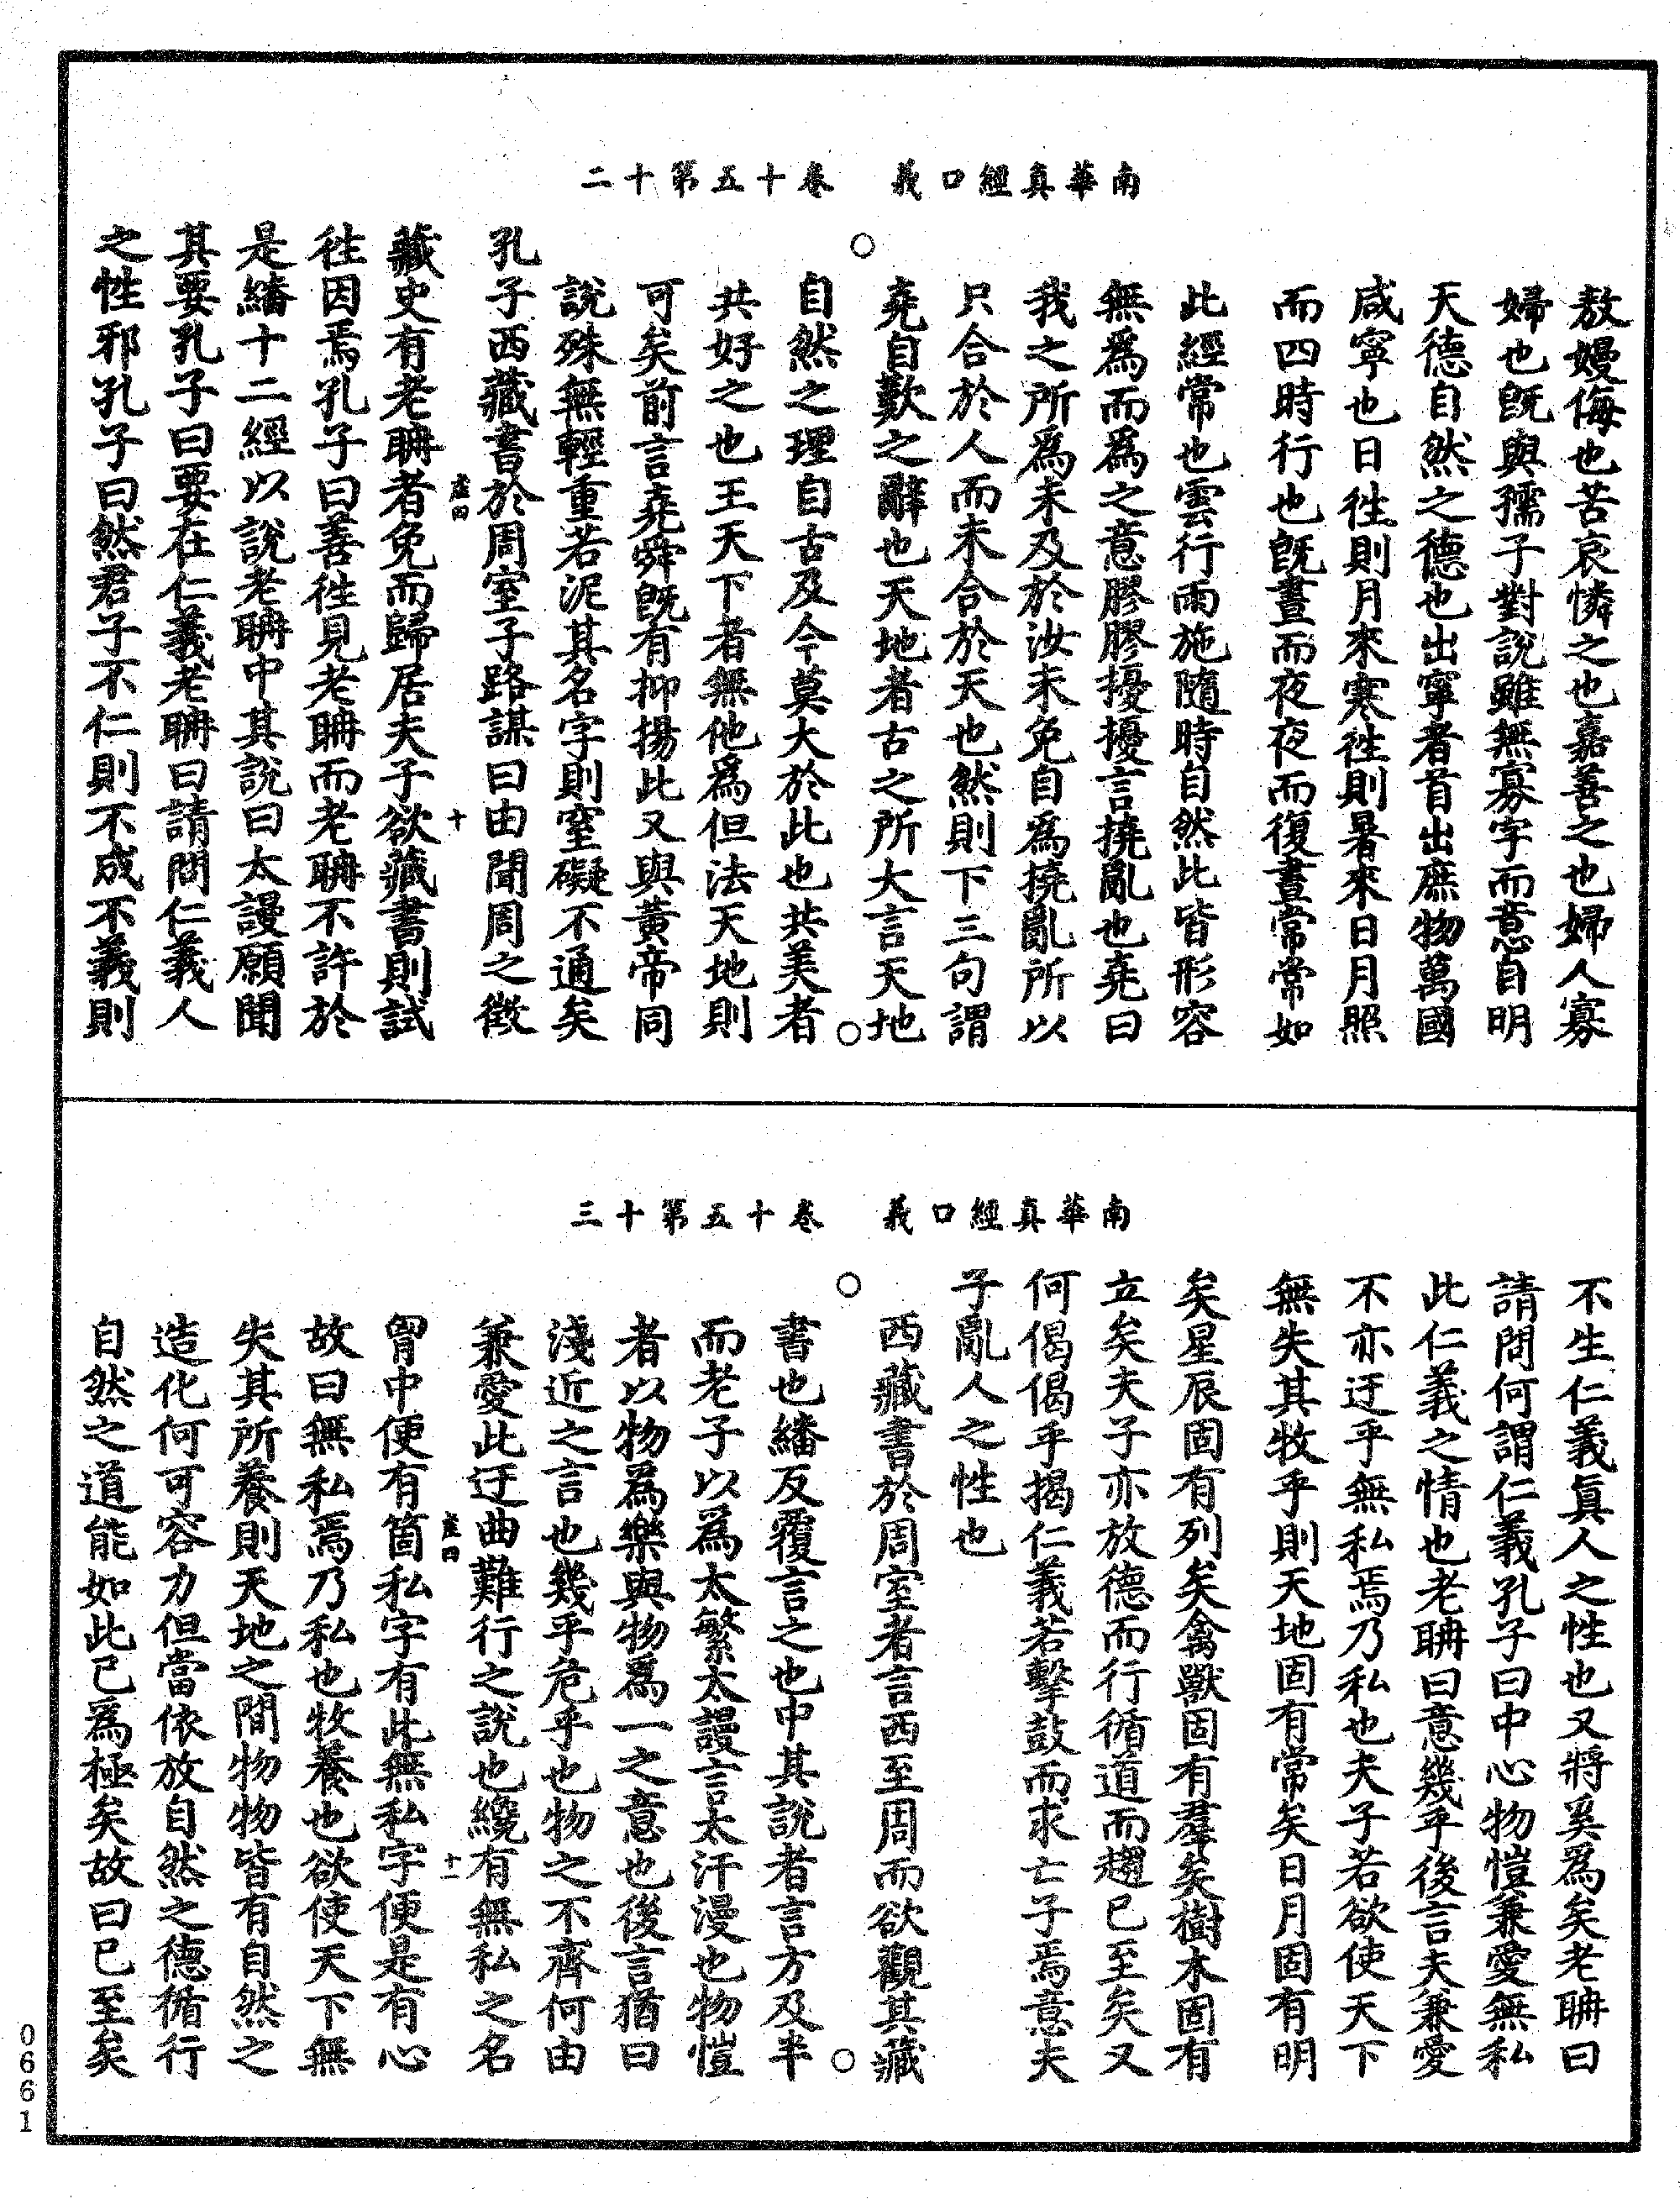 南華真經口義　卷十五第十二
敖嫚侮也苦哀憐之也嘉善之也婦人寡
婦也旣與孺子對說雖無寡字而意自明
天德自然之德也出寧者首出庶物萬國
咸寧也日徃則月來寒徃則暑來日月照
而四時行也旣晝而夜夜而復晝常常如
此經常也雲行雨施隨時自然比皆形容
無爲而爲之意膠膠擾擾言撓亂也堯曰
我之所爲未及於汝未免自爲撓亂所以
只合於人而未合於天也然則下三句謂
堯自歎之辭也天地者古之所大言天地
自然之理自古及今莫大於此也共美者
共好之也王天下者無他爲但法天地則
可矣前言堯舜旣有抑揚此又與黃帝同
說殊無輕重若泥其名字則窒礙不通矣
孔子西藏書於周室子路謀曰由聞周之徵
藏史有老聃者免而歸居夫子欲藏書則試
徃因焉孔子曰善徃見老聃而老聃不許於
是繙十二經以說老聃中其說曰太謾願聞
其要孔子曰要在仁義老聃曰請問仁義人
之性邪孔子曰然君子不仁則不成不義則
南華真經口義　卷十五第十三
不生仁義眞人之性也又將奚爲矣老聃曰
請問何謂仁義孔子曰中心物愷兼愛無私
此仁義之情也老聃曰意幾乎後言夫兼愛
不亦迂乎無私焉乃私也夫子若欲使天下
無失其牧乎則天地固有常矣日月固有明
矣星辰固有列矣禽獸固有羣矣樹木固有
立矣夫子亦放德而行循道而趨已至矣又
何偈偈乎揭仁義若擊鼓而求亡子焉意夫
子亂人之性也
西藏書於周室者言西至周而欲觀其藏
書也繙反覆言之也中其說者言方及半
而老子以爲太繁太謾言太汗漫也物愷
者以物爲樂與物爲一之意也後言猶曰
淺近之言也幾乎危乎也物之不齊何由
兼愛此迂曲難行之說也纔有無私之名
胷中便有箇私字有此無私字便是有心
故曰無私焉乃私也牧養也欲使天下無
失其所養則天地之間物物皆有自然之
造化何可容力但當依放自然之德循行
自然之道能如此已爲極矣故曰已至矣
0661